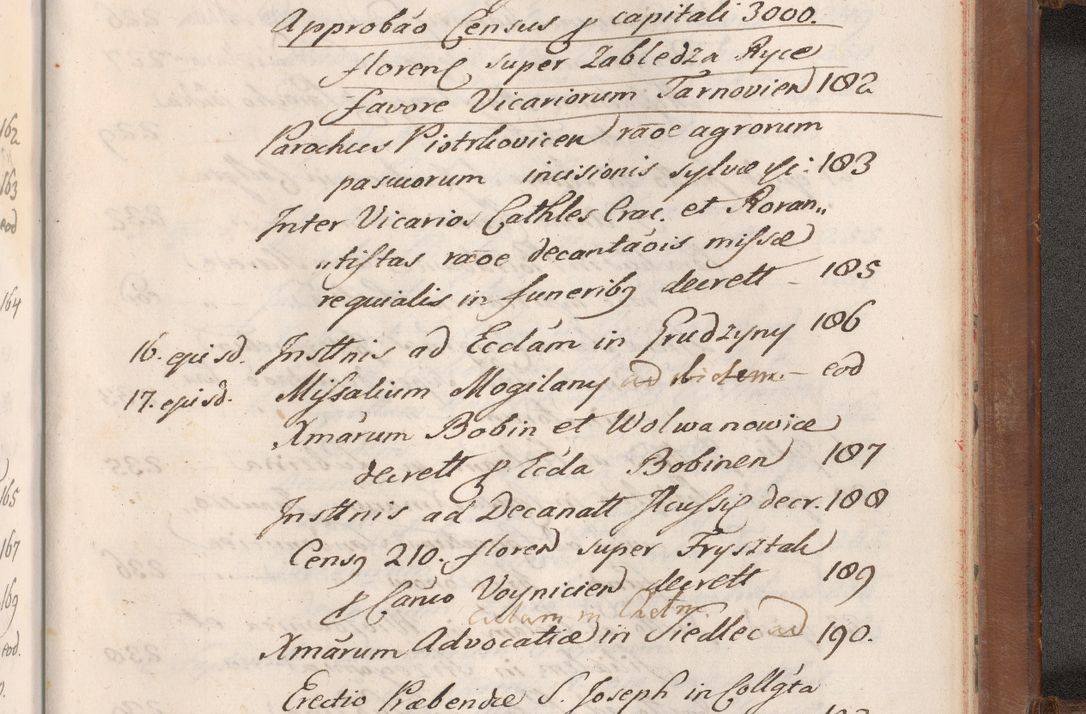 Approbão Census p capitali 3000.
floren super Zabledza Ryce
favore Vicariorum Tarnovien 182
Parochus Piotrkovicen rãoe agrorum
pascuorum incisionis sylvæ &c: 183
Inter Vicarios Cathles Crac. et Roran„
„tistas rãoe decantãois missæ
requialis in funeribq decrett - 185
16. episd. Insttnis ad Ecclãm in Grudzyny 186
17. episd. Missalium Mogilany ad bidem. - eod
Xmãrum Bobin et Wolwanowice
decrett p Ecda Bobinen 187
Insttnis ad Decanatt decr. 188
Censq 210. floren super Frysztak
p Canco Voynicien decrett 189
Eclam in Chelm
Xmãrum Advocatiæ in Siedlec ad 190.
Erectio Præbendæ S. Joseph in Collgta
162
163
eod
164
165
167
169
eod.